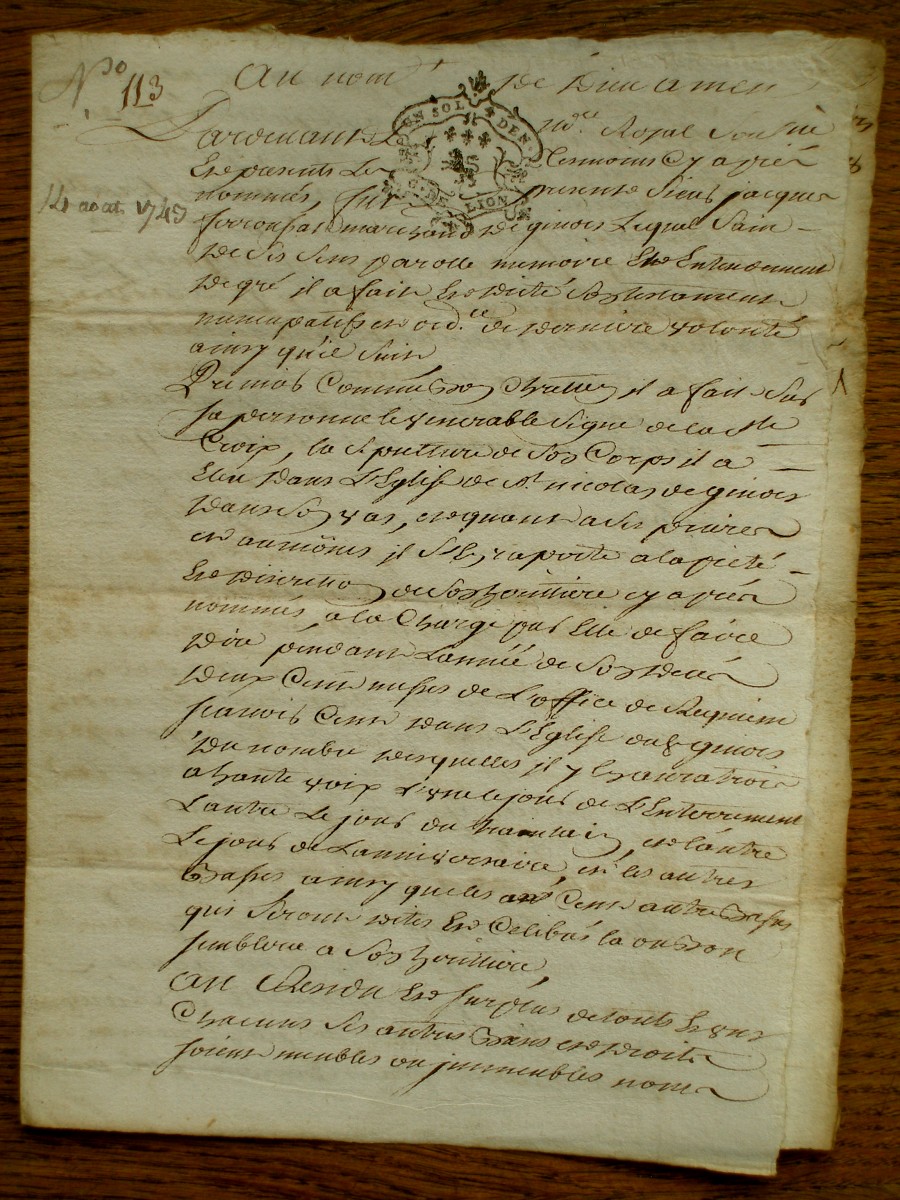 N.o 113
Au nom de Dieu amen
Pardevant Le no.re Royal soussigné
Et presents Les temoins cy après
nommés, fut presente Sieur jacques
marchand de ginois Lequel Sain
De Ses Sens parolle memoire Et Entendement
De gré il a fait Et dicté Son testament
nuncupatif et ord.ce de derniere volonté
ainsy qu'ie Suit
14 aoat 1745
UN SOL DEN.
G. DE LION
Primo Comme bon Chretien il a fait Sur
Sa personne le venerable Signe de la S.te
Croix, la Sepulture de Son Corps il a
Elu dans L'Eglise de S.t nicolas de ginois
dans Son vas, et quant a Ses prieres
et aumônes il S'en raporte a la pieté
Et discretion de Son heritiere cy après
nommée, a la Charge par Elle de faire
dire pendant L'année de Son decés
deux Cent messes de L'office de Requiem
Scavoir Cent dans L'Eglise dud. ginois
du nombre desquelles il y En aura trois
a haute voix L'une le jour de L'Enterrement
L'autre Le jour du trentain, et L'autre
Le jour de L'anniversaire, et les autres
basses ainsy que les Cent autres basses
qui Seront dites Et Celebrés la ou bon
Semblera a Son heritiere
Au Residu Et Surplus de touts Et uns
Chacuns Ses autres biens et droits
Soient meubles ou jmmeubles noms